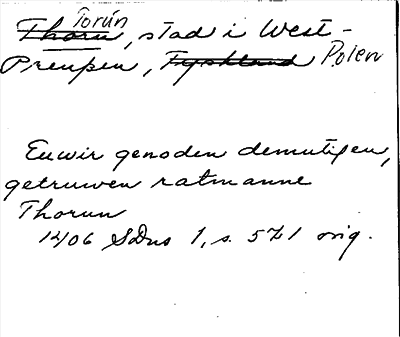 Toruń
Thorn, stad i West-
Preuβen, Tyskland Polen
Euwir genoden demutigen,
getruwen ratmanne
Thorun
1406 SDns 1, s. 571 orig.